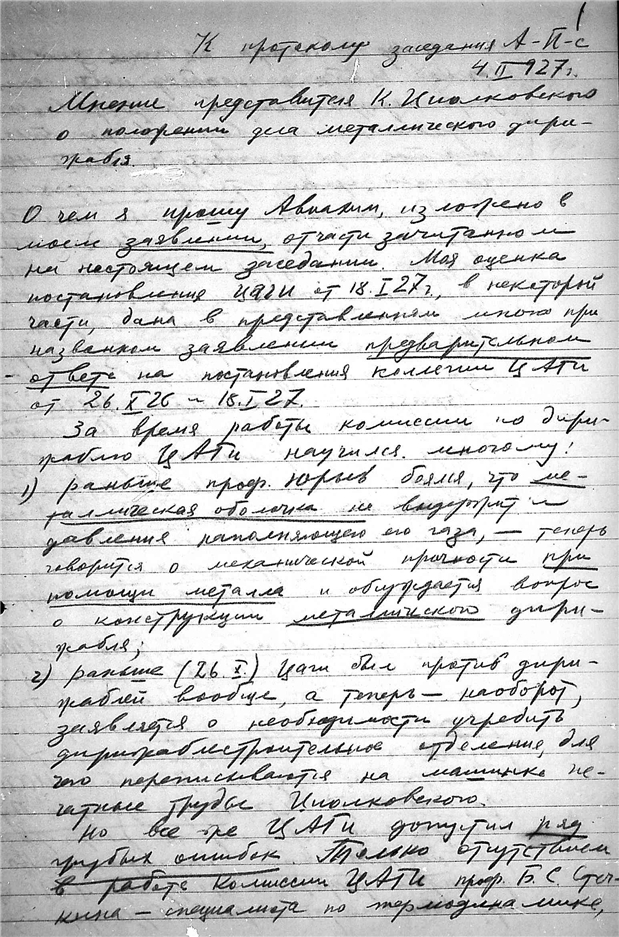 1
К протоколу заседания А-П-с
4.II 927г.
Мнение представителя К. Циолковского
о положении дела металлического дири-
жабля
О чем я прошу Авиахим, изложено в
моем заявлении, отчасти зачитанном
на настоящем заседании. Моя оценка
постановления ЦАГИ от 18.I 27г., в некоторой
части, дана в представленном мною при
названном заявлении предварительном
ответе на постановления коллегии ЦАГИ
от 26.X 26 и 18.I 27.
За время работы комиссии по дири-
жаблю ЦАГИ научился многому!
1) раньше проф. Юрьев боялся, что ме-
таллическая оболочка не выдержит и
давления наполняющего его газа, — теперь
говорится о механической прочности при
помощи металла и обсуждается вопрос
о конструкции металлического дири-
жабля;
2) раньше (26.X.) ЦАГИ был против дири-
жаблей вообще, а теперь — наоборот,
заявляется о необходимости учредить
дирижаблестроительное отделение, для
чего переписываются на машинке пе-
чатные труды Циолковского.
Но все-же ЦАГИ допустил ряд
грубых ошибок. Только отсутствием
в работе Комиссии ЦАГИ проф. Б. С. Стеч-
кина — специалиста по термодинамике,